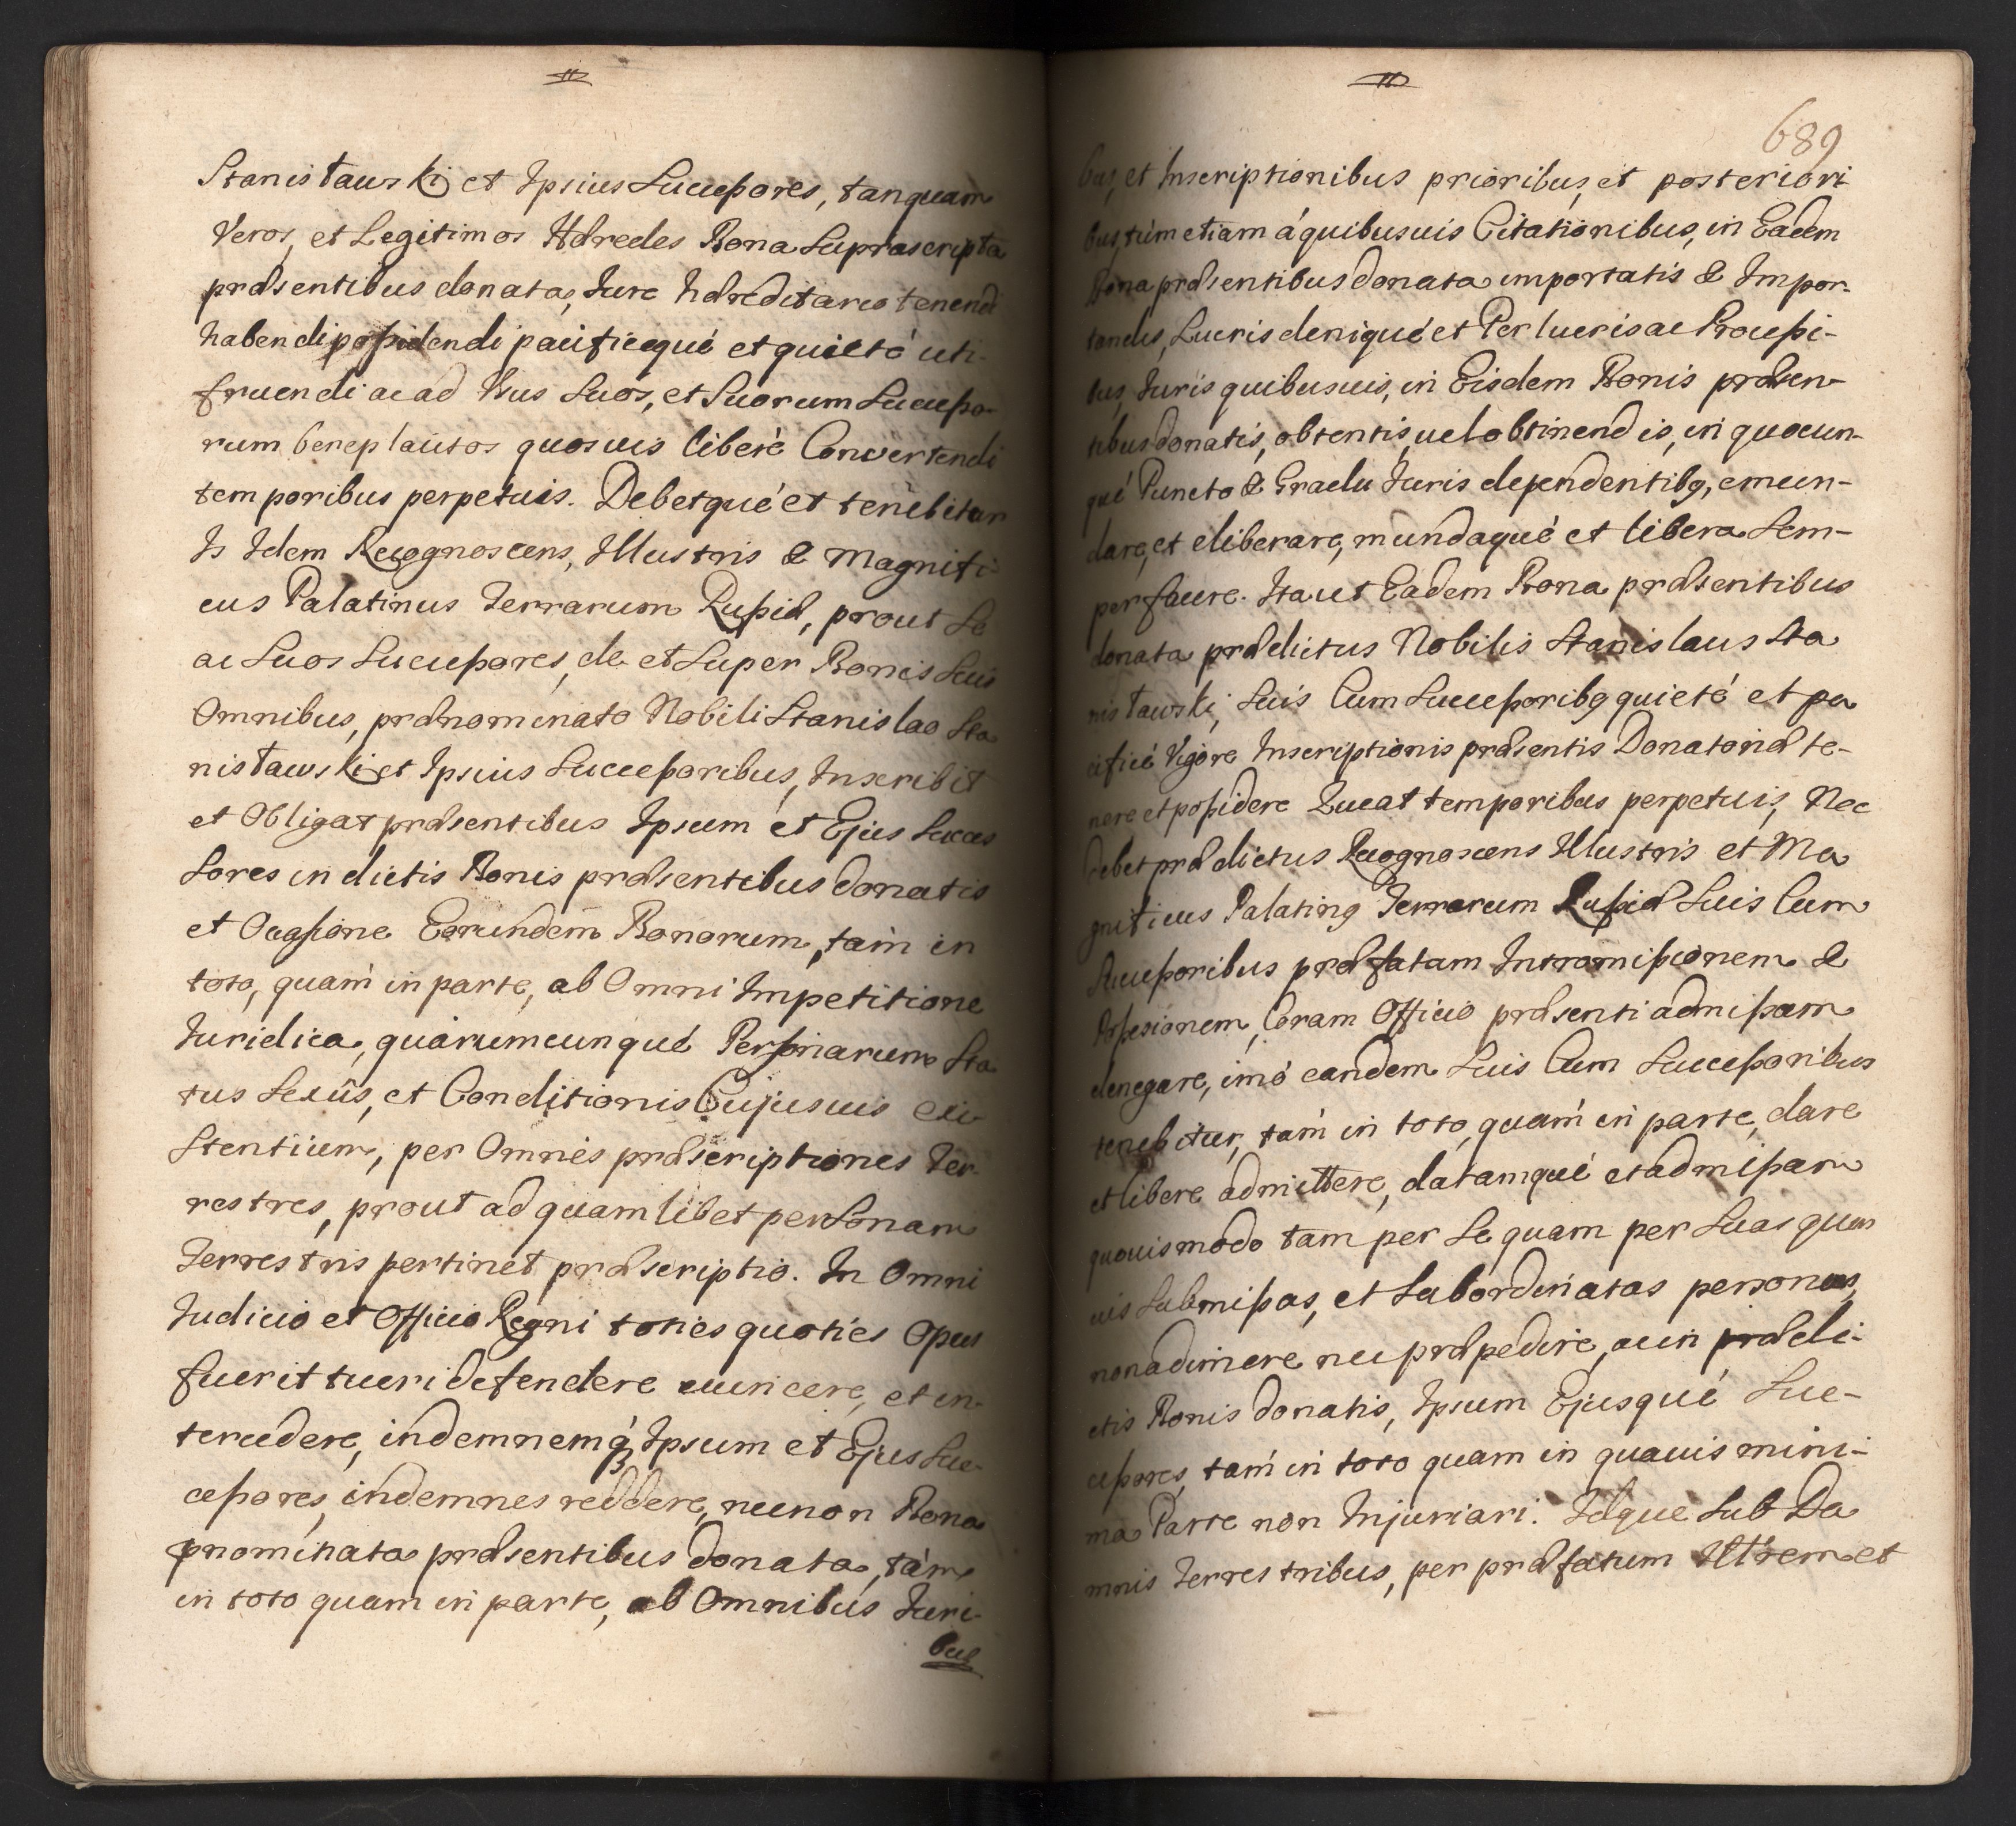 Stanisławski et Ipsius Successores, tanquam
Veros, et Legitimos Hæredes Bona Suprascripta
præsentibus donata, Jure hæreditario tenendi
habendi possidendi pacificequé et quieté uti
fruendi ac ad Usus Suos, et Suorum Successo-
rum beneplacitos quosvis liberè Convertendi
temporibus perpetuis. Debetqué et tenebitur
Is Idem Recognoscens, Illustris & Magnifi-
cus Palatinus Terrarum Russiæ, prout Se
ac Suos Successores, de et Super Bonis Suis
Omnibus, prænominato Nobili Stanislao Sta
nisławski et Ipsius Successoribus, Inscribit
et Obligat præsentibus Ipsum et Ejus Succes
Sores in dictis Bonis præsentibus donatis
et Occasione Eorundem Bonorum, tam in
toto, quam in parte, ab Omni Impetitione
Juridica, quarumcunqué Personarum Sta
tus Sexûs, et Conditionis Cujusvis exi-
Stentium, per Omnes præscriptiones Ter-
restres, prout ad quamlibet perSonam
Terrestris pertinet præscriptio. In Omni
Judicio et Officio Regni toties quoties Opus
fuerit tueri defendere evincere, et in-
tercedere, indemnemq́ Ipsum et Ejus Suc-
cessores, indemnes reddere, necnon Bona
pnominata præsentibus donata, tàm
in toto quam in parte, ab Omnibus Juri-
bus
689
bus, et Inscriptionibus prioribus, et posteriori
bus, tùm etiam á quibusvis Citationibus, in Eadem
Bona præsentibus donata importatis & Impor-
tandis, Lucris deniqué et Perlucris ac Processi-
bus, Juris quibusvis, in Eisdem Bonis præsen-
tibus donatis, obtentis, vel obtinendis, in quocun-
qué Puncto & Gradu Juris dependentibq, emun-
dare, et eliberare, mundaqué et libera Sem-
per facere. Ita ut Eadem Bona præsentibus
donata prædictus Nobilis Stanislaus Sta
nisławski, Suis Cum Successoribq quieté et pa
cificé Vigore Inscriptionis præsentis Donatoriæ te-
nere et possidere queat temporibus perpetuis, Nec
debet prædictus Recognoscens Illustris et Ma
gnificus Palatinq Terrarum Russiæ Suis Cum
Successoribus præfatam Intromissionem &
Possesionem, Coram Officio præsenti admissam
denegare, imó eandem Suis Cum Successoribus
tenebitur, tám in toto, quàm in parte, dare
et libere admittere, datamqué et admissam
quovismodo tam per Se quam per Suas quas
vis Submissas, et Subordinatas personas,
non adimere nec præpedire, ac in prædi-
ctis Bonis donatis, Ipsum Ejusqué Suc-
cessores, tam in toto quam in quavis mini-
ma Parte non Injuriari. Idque Sub Da
mnis Terrestribus, per præfatum Illtrem et